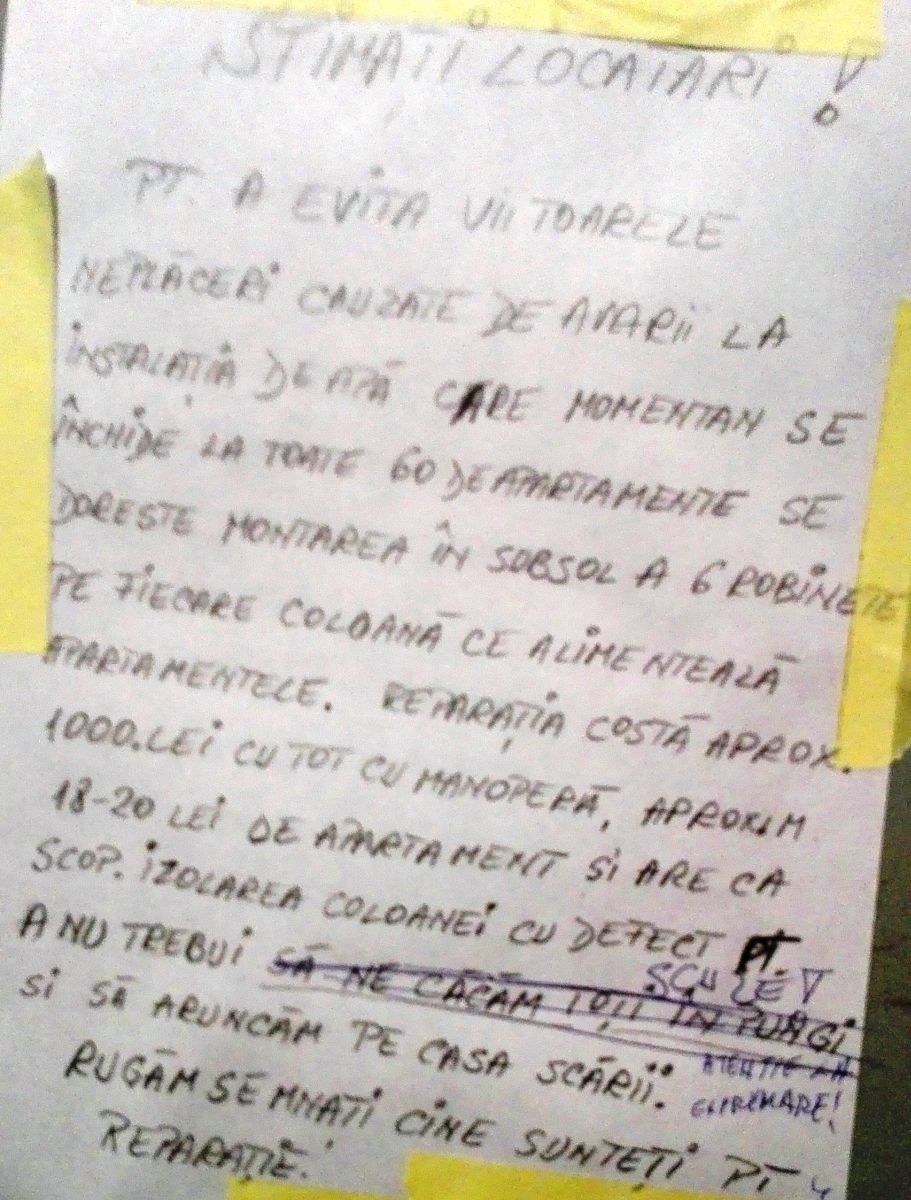 STIMAȚI LOCATARI!
PT. A EVITA VIITOARELE
NEPLĂCERI CAUZATE DE AVARII LA
INSTALAȚIA DE APĂ CARE MOMENTAN SE
ÎNCHIDE LA TOATE 60 DE APARTAMENTE SE
DOREȘTE MONTAREA ÎN SOBSOL A 6 ROBINETE
PE FIECARE COLOANĂ CE ALIMENTEALĂ
APARTAMENTELE. REPARAȚIA COSTĂ APROX.
1000.LEI CU TOT CU MANOPERĂ, APROXIM
18-20 LEI DE APARTAMENT ȘI ARE CA
SCOP. IZOLAREA COLOANEI CU DEFECT PT.
A NU TREBUI SĂ NE CĂCĂM TOȚII ÎN PUNGI
SI SĂ ARUNCĂM PE CASA SCĂRII. ATENȚIE LA
EXPRIMARE!
RUGĂM SEMNAȚI CINE SUNTEȚI PT
REPARAȚIE!